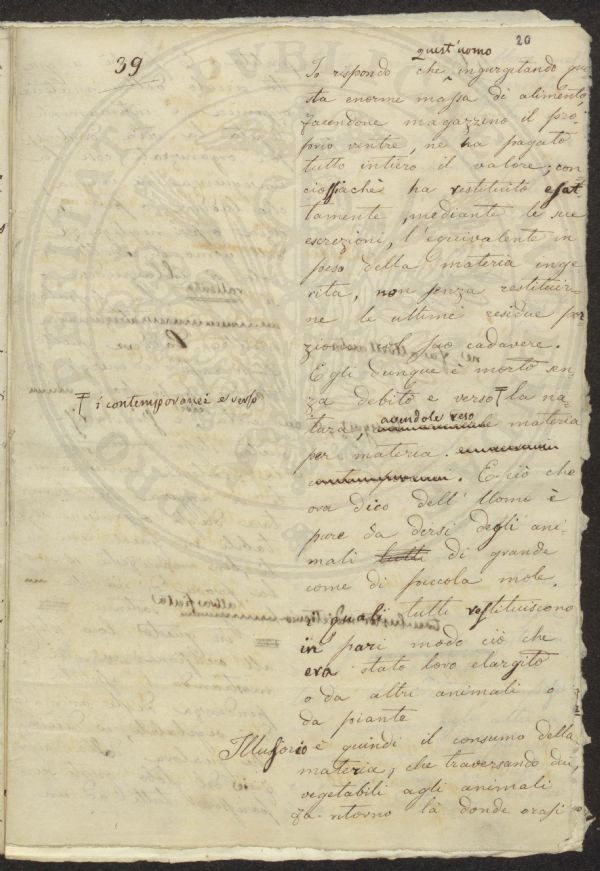 20
39
quest'uomo
Io rispondo che ingurgitando que
sta enorme massa di alimento,
facendone magazzino il pro
prio ventre, ne ha pagato
tutto intiero il valore; con
ciossiachè ha restituito esat
tamente, mediante le sue
escrezioni, l'equivalente in
peso della materia inge
rita, non senza restituir-
ne le ultime residue por
zioni col suo cadavere.
Egli dunque è morto sen
za debito e verso la na-
i contemporanei e verso
tura, avendole reso materia
per materia.
contemporanei. E ciò che
ora dico dell' Uomo è
pure da dirsi degli ani-
mali tutti di grande
come di piccola mole,
i quali tutti restituiscono
in pari modo ciò che
era stato loro elargito
o da altri animali o
da piante
Illusorio è quindi il consumo della
materia, che traversando dai
vegetabili agli animali
fa ritorno là donde erasi